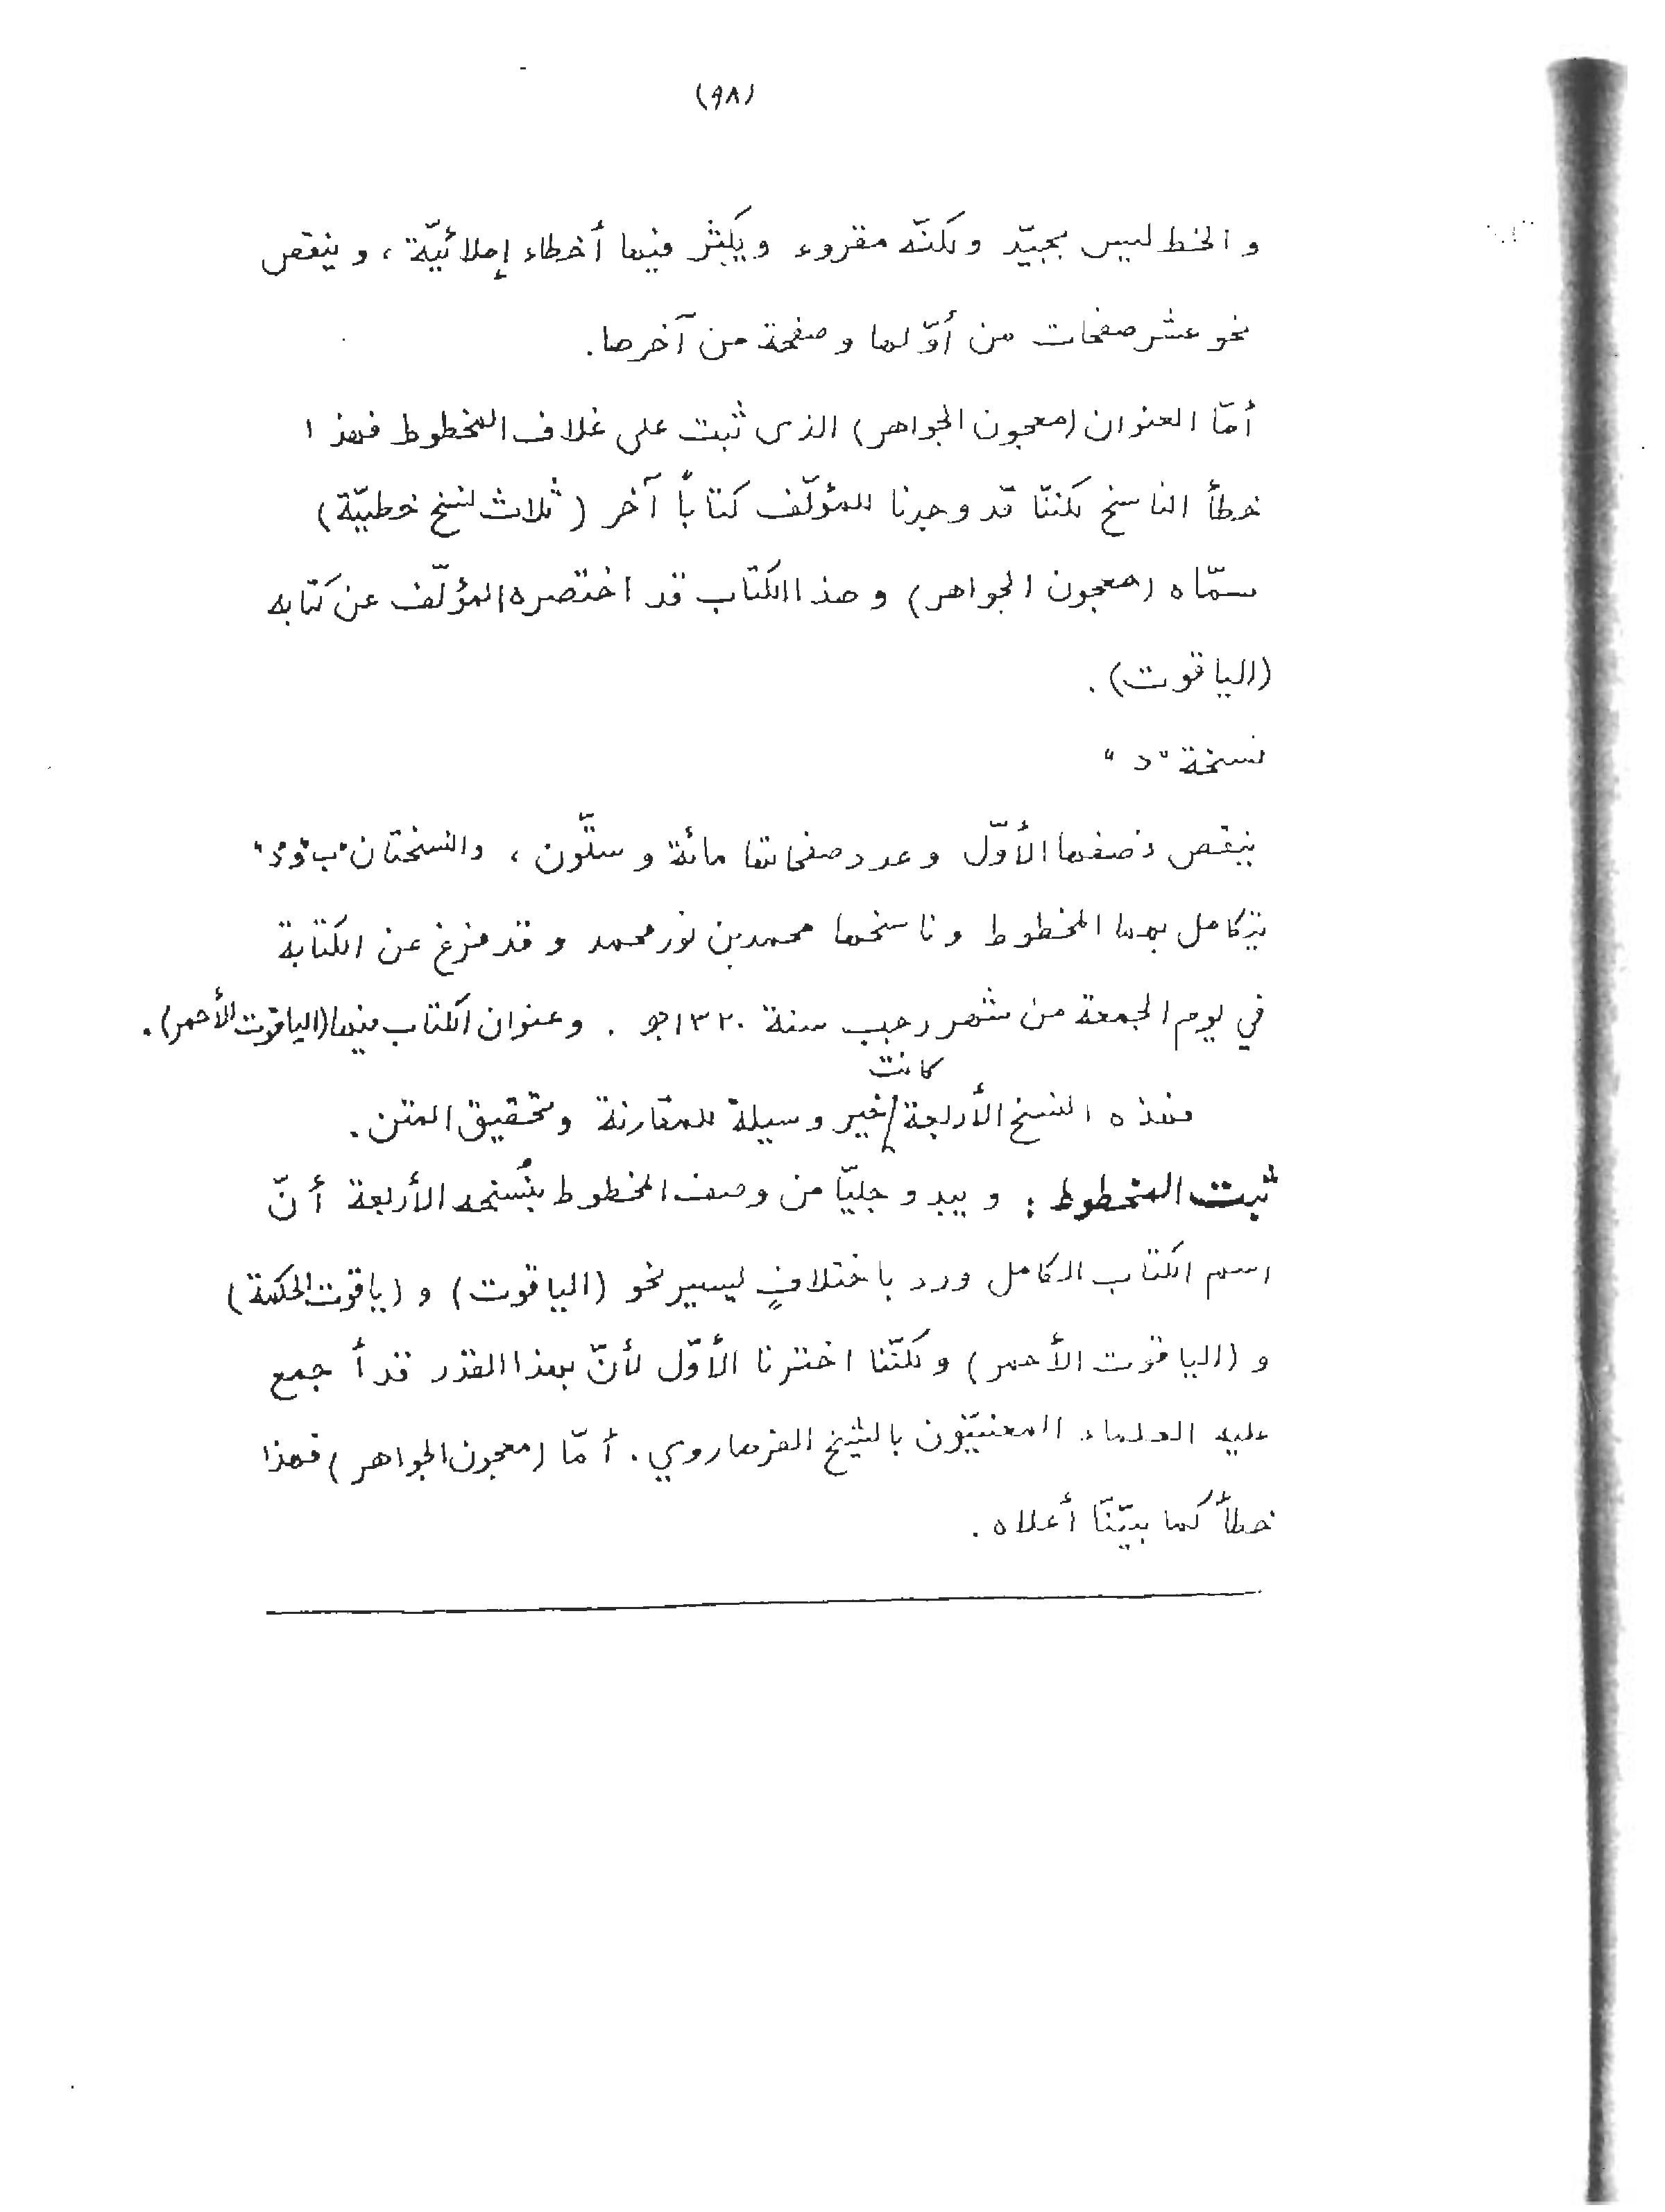 (٩٨)
و الخط ليس بجيّد ولكنّه مقروء ويكثر فيها أخطاء إملائيّة ، و ينقص
نحو عشر صفحات من أوّلها وصفحة من آخرها.
أمّا العنوان (معجون الجواهر) الذى ثبت على غلاف المخطوط فهذا
خطأ الناسخ لكننّا قد وجدنا للمؤلّف كتاباً آخر (ثلاث نسخ خطيّة)
سمّاه (معجون الجواهر) و هذا الكتاب قد اختصره المؤلّف عن كتابه
(الياقوت) .
نسخة "د"
ينقص نصفها الأوّل و عدد صفحاتها مائة و ستّون ، والنسختان "ب" و "د"
يتكامل بهما المخطوط وناسخها محمد بن نور محمد و قد فرغ عن الكتابة
في يوم الجمعة من شهر رجب سنة ١٣٢٠هـ . وعنوان الكتاب فيها (الياقوت الأحمر) .
كانت
فهذه النسخ الأربعة / خير وسيلة للمقارنة وتحقيق المتن .
ثبت المخطوط : و يبدو جليّا من وصف المخطوط بنُسخه الأربعة أنّ
اسم الكتاب الكامل ورد باختلافٍ يسير نحو (الياقوت) و (ياقوت الحكمة)
و (الياقوت الأحمر) و لكنّنا اخترنا الأوّل لأنّ بهذا القدر قد أجمع
عليه العلماء المعنيّون بالشيخ الفرهاروي . أمّا (معجون الجواهر) فهذا
خطأ كما بيّنّا أعلاه .